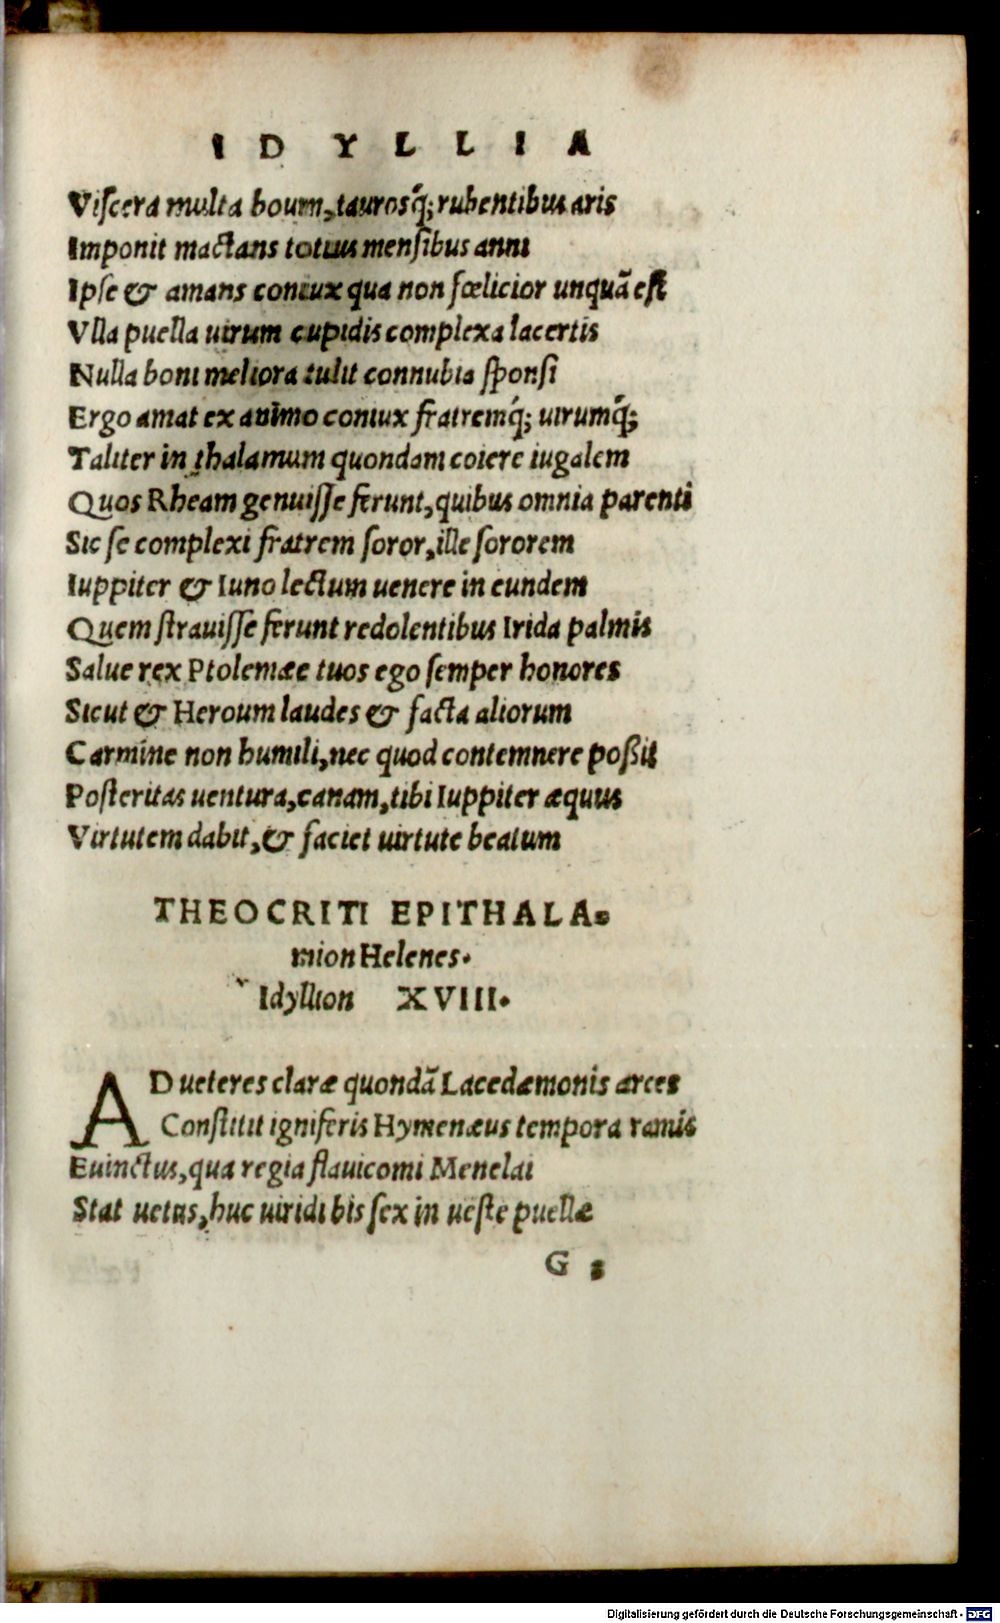 IDYLLIA
Viſcera multa boum, tauroſq́; rubentibus aris
Imponit mactans totius menſibus anni
Ipſe & amans coniux qua non fœlicior unquã eſt
Vlla puella uirum cupidis complexa lacertis
Nulla boni meliora tulit connubia ſponſi
Ergo amat ex animo coniux fratremq́; uirumq́;
Taliter in thalamum quondam coiere iugalem
Quos Rheam genuiſſe ferunt, quibus omnia parenti
Sic ſe complexi fratrem ſoror, ille ſororem
Iuppiter & Iuno lectum uenere in eundem
Quem ſtrauiſſe ferunt redolentibus Irida palmis
Salue rex Ptolemæe tuos ego ſemper honores
Sicut & Heroum laudes & facta aliorum
Carmine non humili, nec quod contemnere poßit
Poſteritas uentura, canam, tibi Iuppiter æquus
Virtutem dabit, & faciet uirtute beatum
THEOCRITI EPITHALA-
mion Helenes.
Idyllion XVIII.
AD ueteres claræ quondã Lacedæmonis arces
Conſtitit igniferis Hymenæus tempora ramis
Euinctus, qua regia flauicomi Menelai
Stat uetus, huc uiridi bis ſex in ueſte puellæ
G
Digitalisierung gefördert durch die Deutsche Forschungsgemeinschaft - DFG